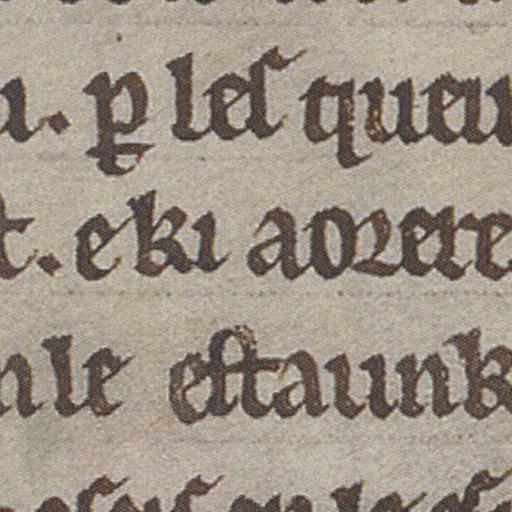 u. ꝑ leſ queu
t. e ki aoꝛere
nle eſtaunk